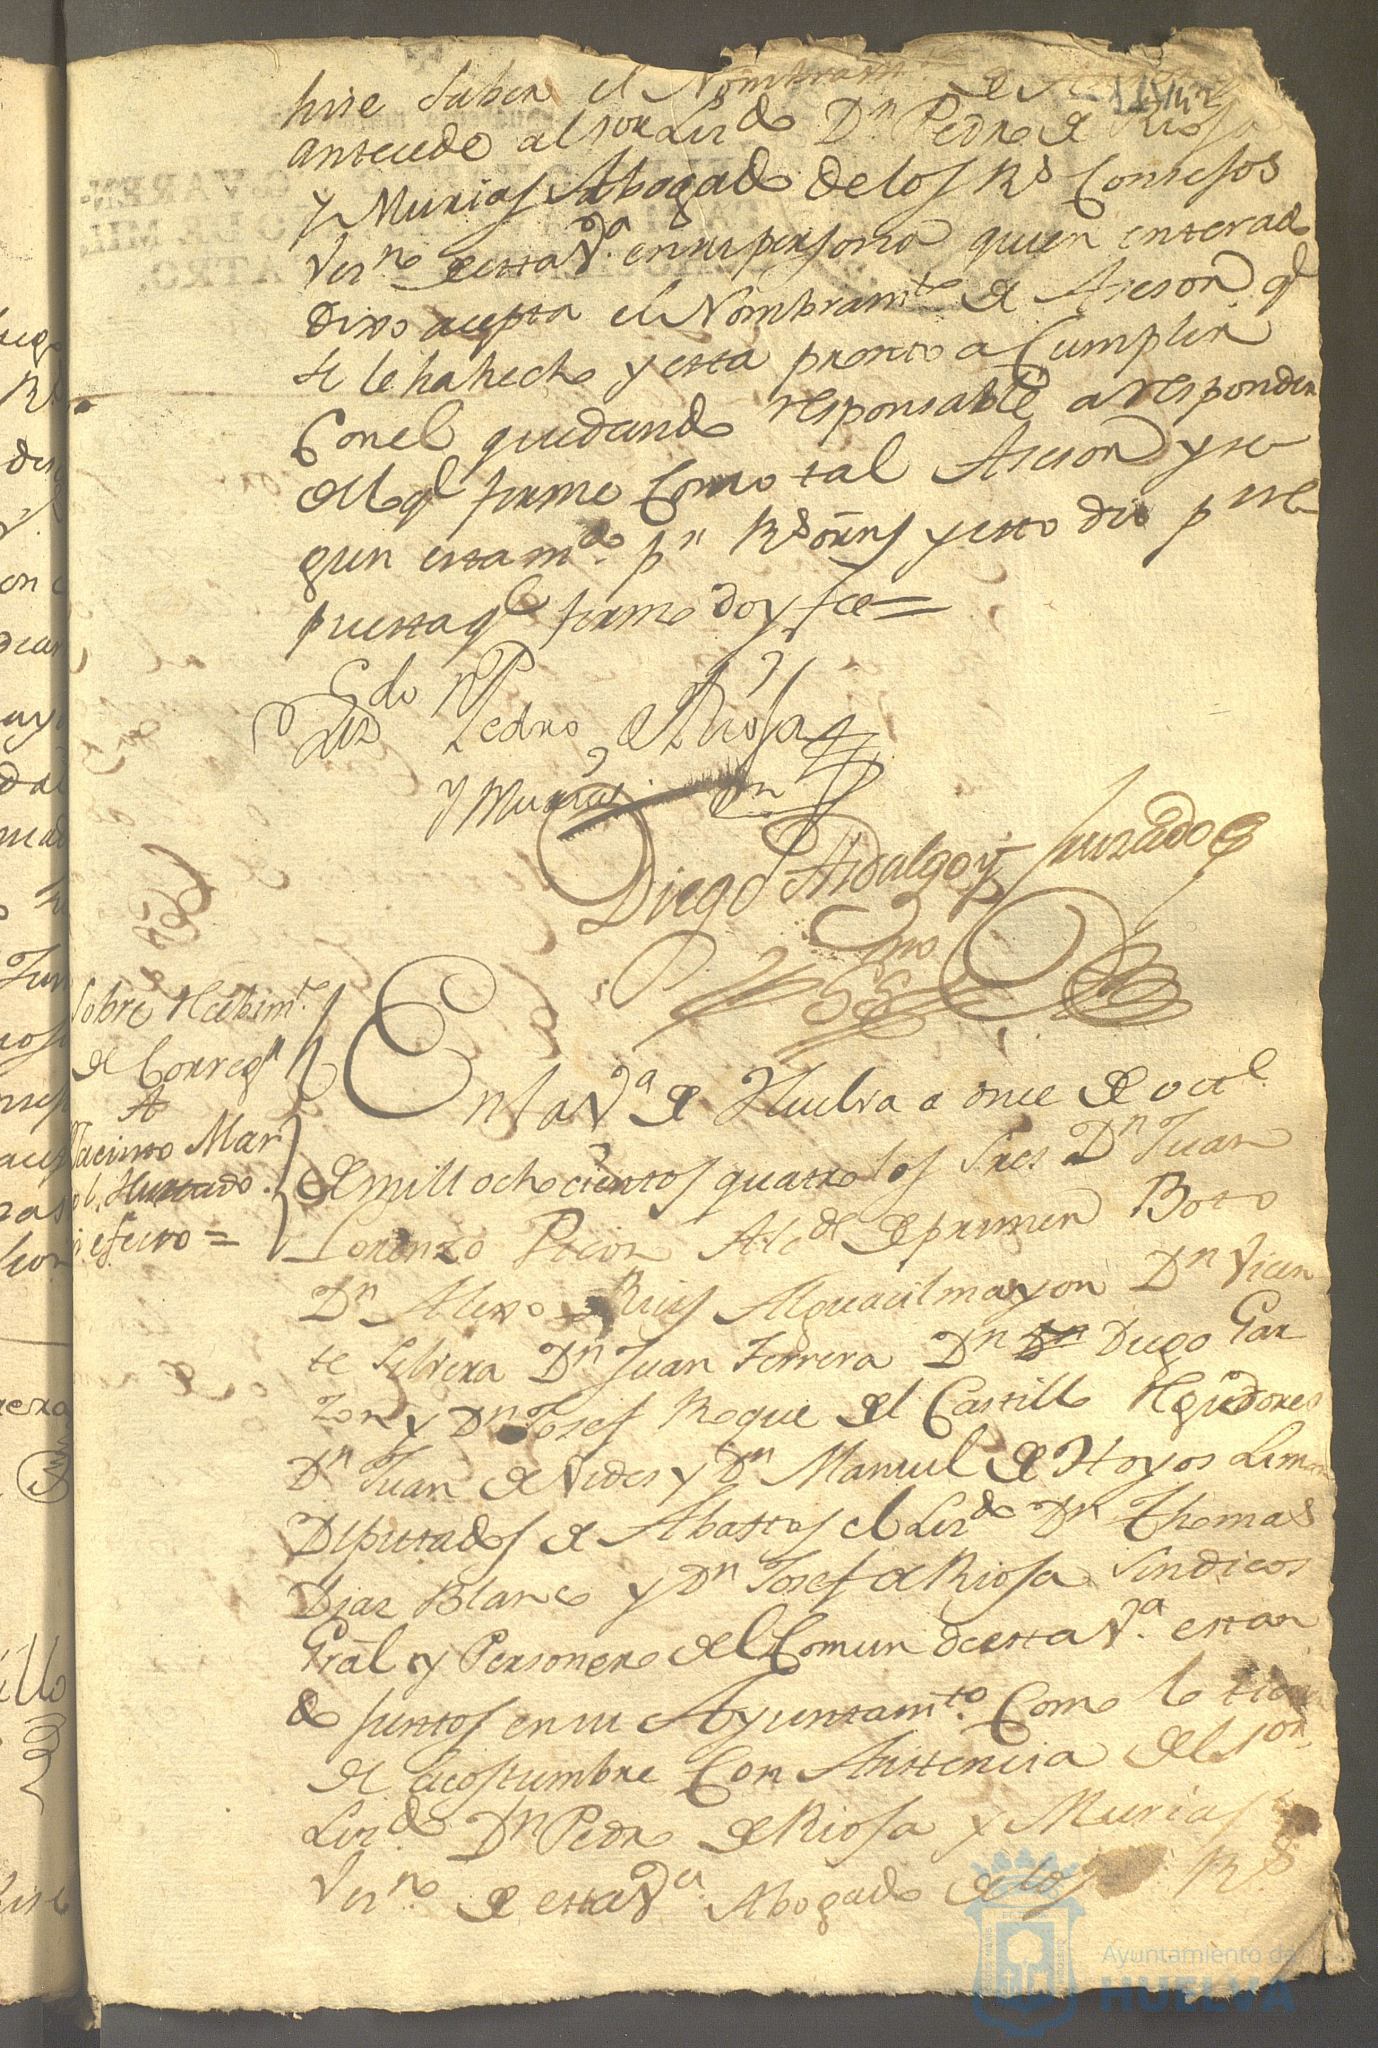 hise saber el Nombramto de
antecede al sor Lizdo Dn Pedro de Riosa
y Murias Abogado de los Rs Consejos
Vezno de esta Va en su persona quien enterado
dixo acepta el Nombramto de Asesor q
se le ha hecho y esta pronto a Cumplir
Con el quedando responsable a responder
de lo q firme Como tal Asesor y se
gun esta mdo pr Rs orns y esto dio pr res
puesta q firmo doy fee =
Lizdo Dn Pedro de Riosa
y Murias
Diego Hidalgo y Jurado
Sno
Sobre Recibimto
de Corregr
A
Jacinto Mar
Hurtado
efecto =
En la Va de Huelva a once de octe
de mill ochocientos quatro los Sres Dn Juan
Lorenzo Picon Alcde de primer Boto
Dn Alexo Ruis Alguacil mayor Dn Vicen
te Silvera Dn Juan Ferrera Dn Diego Gar
zon y Dn Josef Roque del Castillo Regidores
Dn Juan de Vides y Dn Manuel de Hoyos Limon
Diputados de Abastos el Lizdo Dn Thomas
Diaz Blanco y Dn Josef de Riosa Sindicos
Gral y Personero del Comun de esta Va estan
do juntos en su Ayuntamto Como lo tien
de acostumbre Con Asistencia del sor
Lizdo Dn Pedro de Riosa y Murias
Vezno de esta Va Abogado de los Rs
Ayuntamiento de
HUELVA